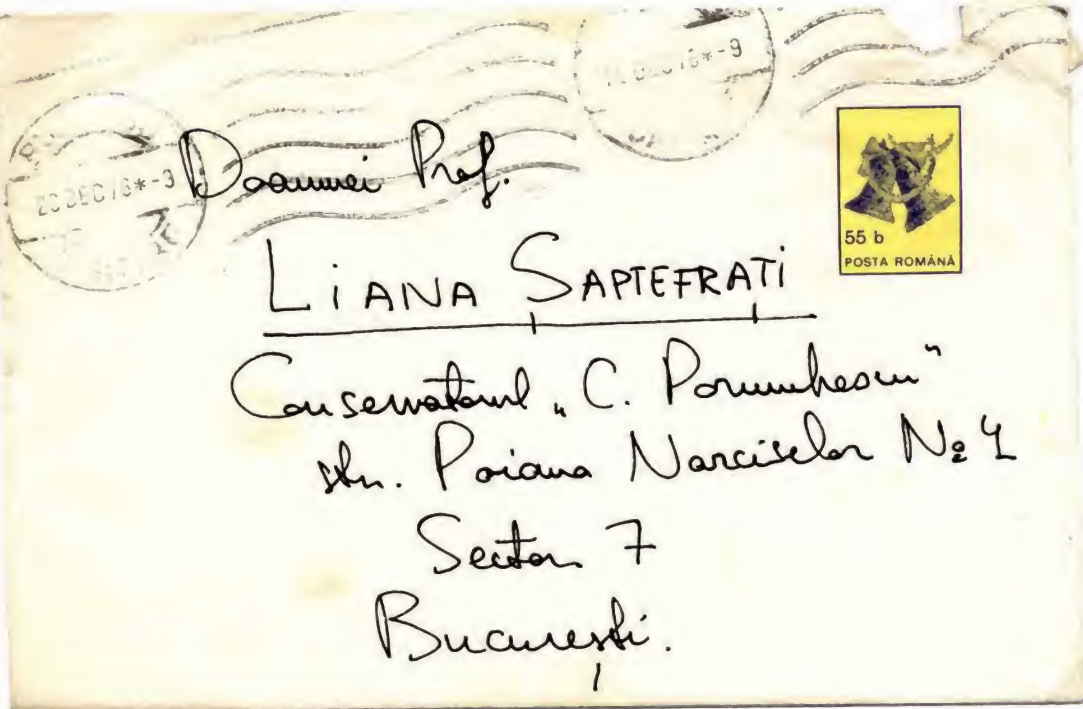 20 DEC 76*-3
DEC 76*-9
Doamnei Prof.
LiANA ȘAPTEFRAȚI
55 b
POSTA ROMÂNĂ
Conservatorul „C. Porumbescu"
str. Poiana Narciselor №
Sector 7
București.